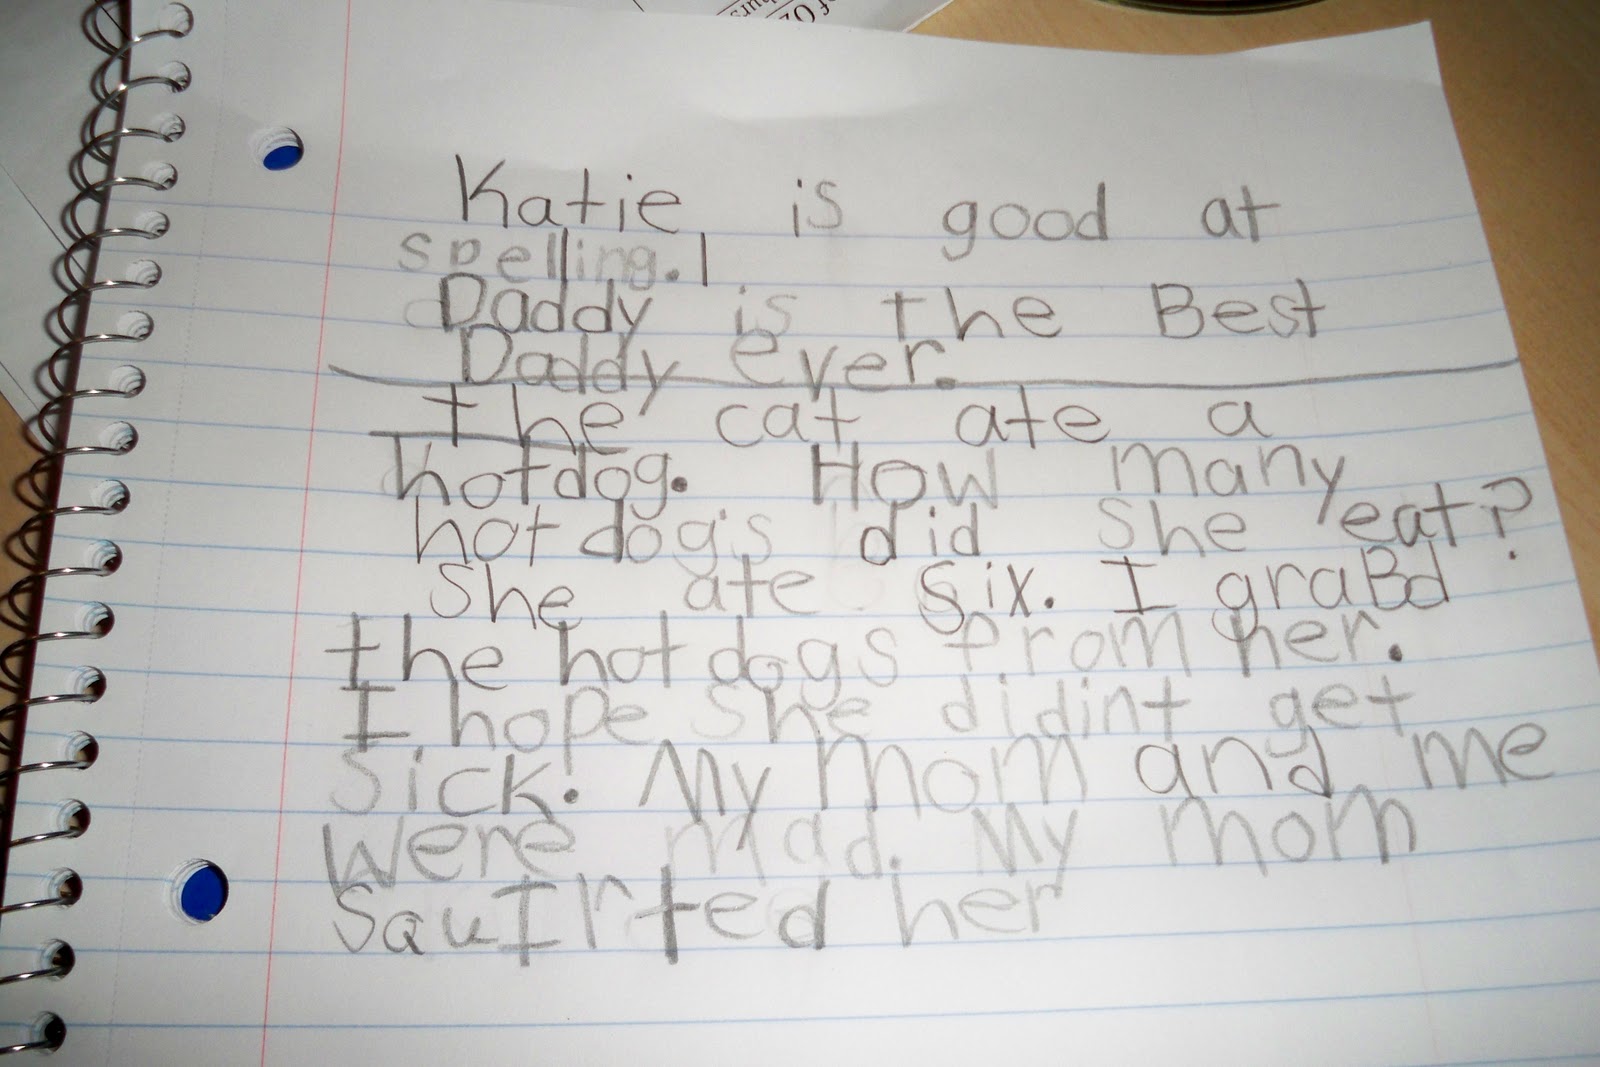 Katie is good at
spelling.
Daddy is the Best
Daddy ever.
The cat ate a
hotdog. How many
hotdog's did She eat?
She ate Six. I graBd
the hotdogs from her.
I hope She didint get
Sick. My mom and me
were mad. My mom
SquIrted her